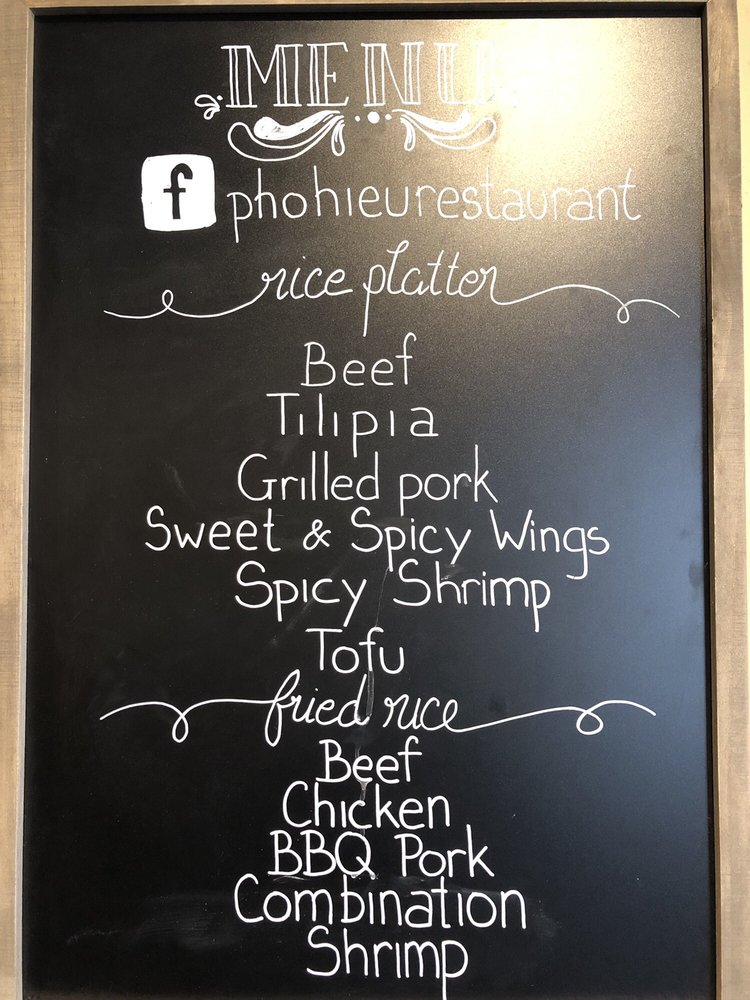 MENU
f phohieurestaurant
rice platter
Beef
Tilipia
Grilled pork
Sweet & Spicy Wings
Spicy Shrimp
Tofu
fried rice
Beef
Chicken
BBQ Pork
Combination
Shrimp